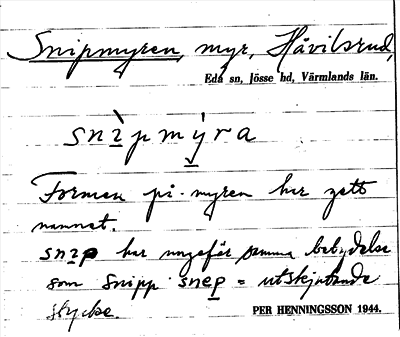 Snipmyren, myr, Håvilsrud,
Eda sn, Jösse hd, Värmlands län.
snìpmýra
Formen på myren har gett
namnet.
snip har ungefär samma betydelse
som snipp snep = utskjutande
stycke.
PER HENNINGSSON 1944.